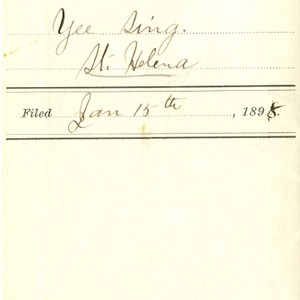 Yee Sing.
St. Helena
Filed Jan 15th, 189